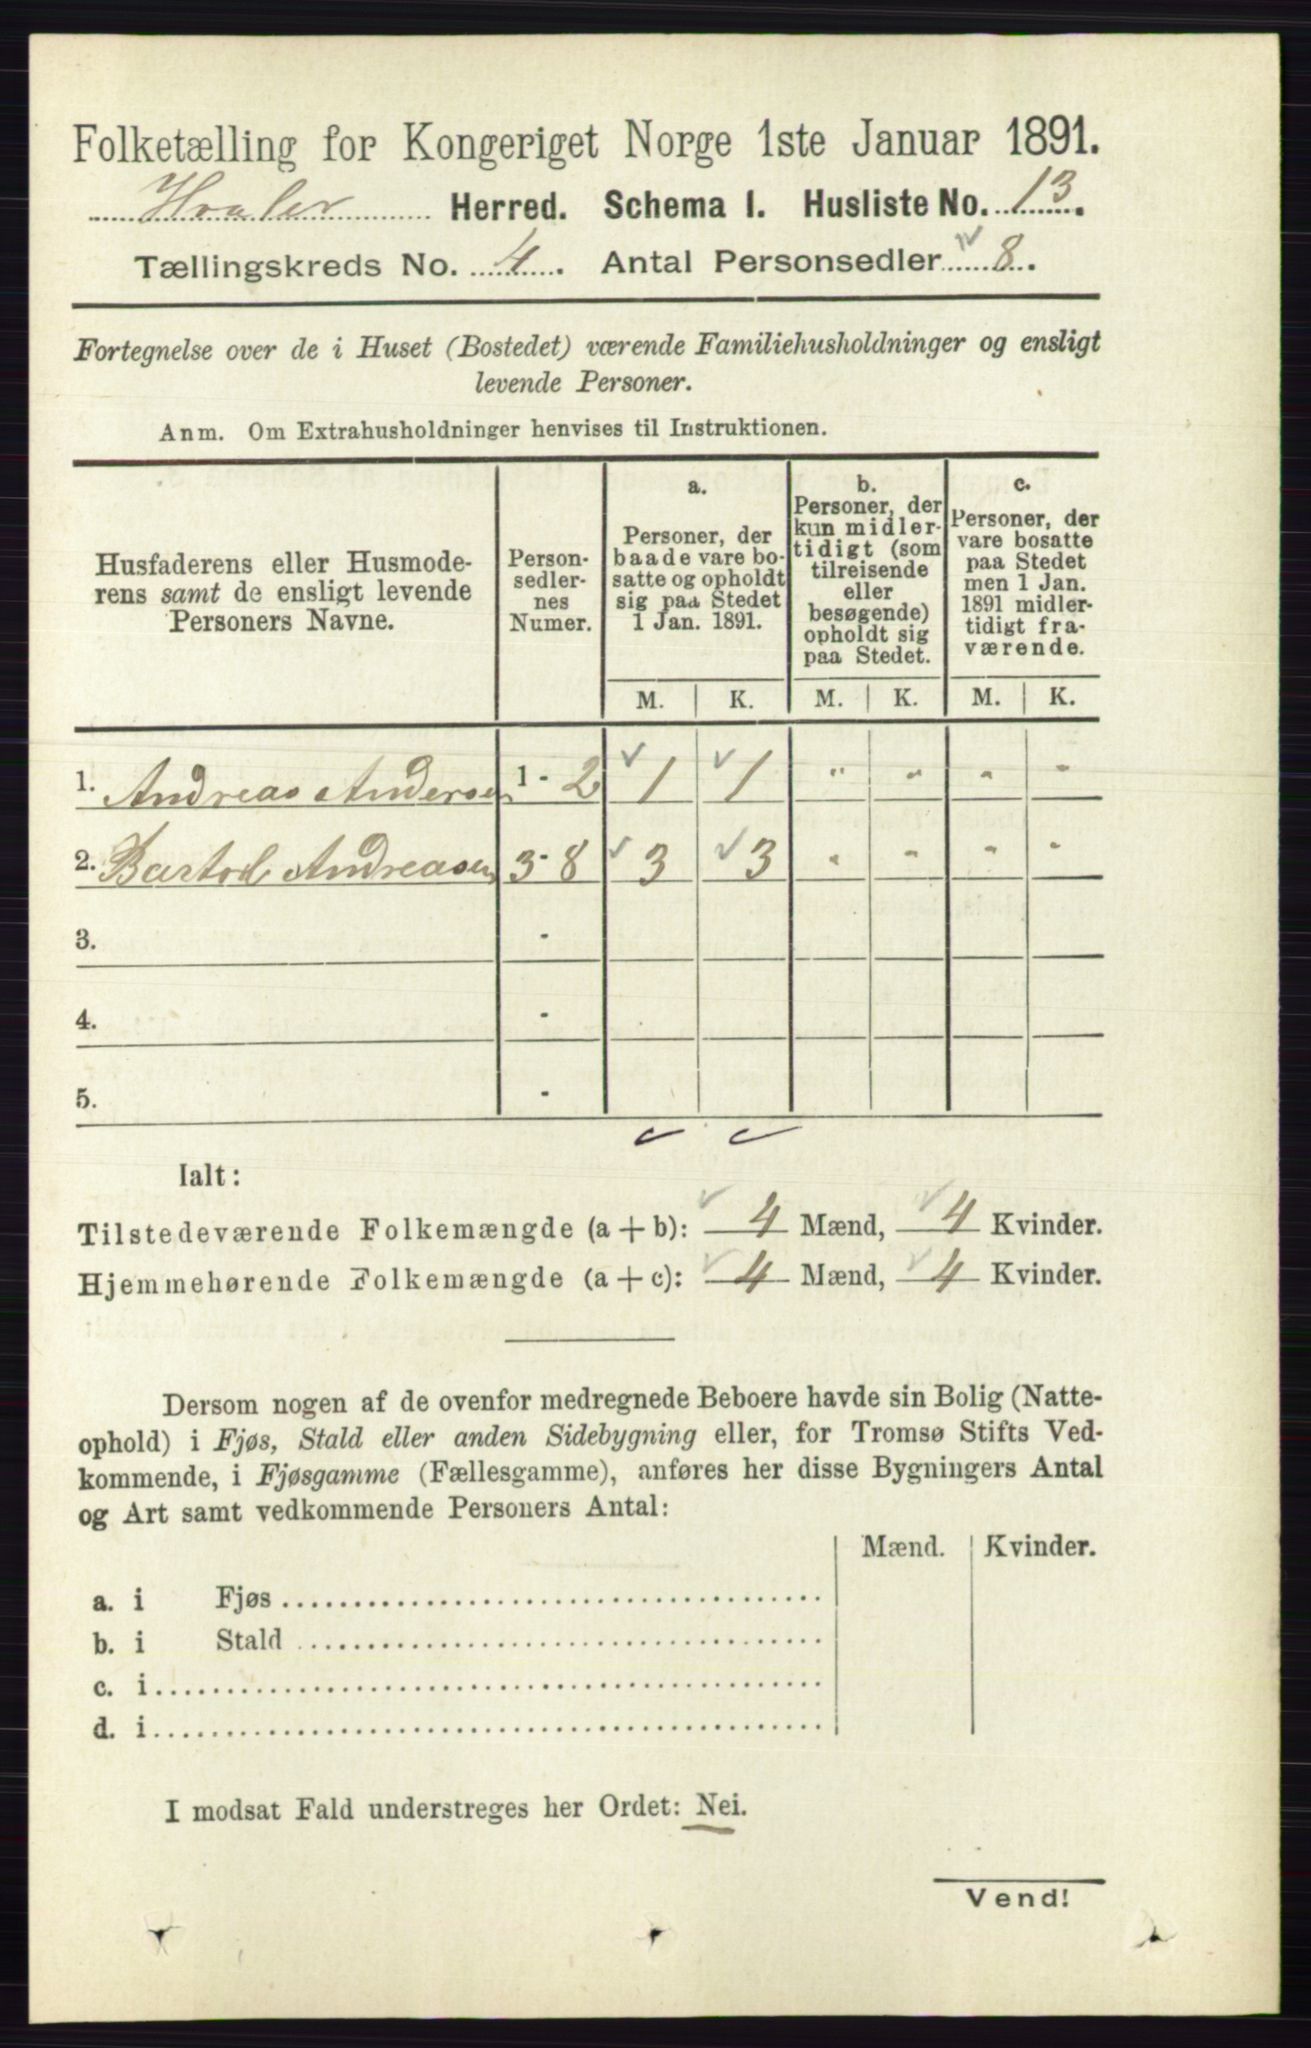 Folketælling for Kongeriget Norge 1ste Januar 1891.
Hvaler Herred. Schema I. Husliste No. 13.
Tællingskreds No. 4. Antal Personsedler 8.
Fortegnelse over de i Huset (Bostedet) værende Familiehusholdninger og ensligt
levende Personer.
Anm. Om Extrahusholdninger henvises til Instruktionen.
Husfaderens eller Husmode-
rens samt de ensligt levende
Personers Navne.
Person-
sedler-
nes
Numer.
a.
Personer, der
baade vare bo-
satte og opholdt
sig paa Stedet
1 Jan. 1891.
b.
Personer, der
kun midler-
tidigt (som
tilreisende
eller
besøgende)
opholdt sig
paa Stedet.
c.
Personer, der
vare bosatte
paa Stedet
men 1 Jan.
1891 midler-
tidigt fra-
værende.
M. K. M. K. M. K.
1. Andreas Andersen 1 - 2 1 1 " " " "
2. Bartod Andreasen 3 - 8 3 3 " " " "
3. -
4. -
5. -
Ialt:
Tilstedeværende Folkemængde (a + b): 4 Mænd, 4 Kvinder.
Hjemmehørende Folkemængde (a + c): 4 Mænd, 4 Kvinder.
Dersom nogen af de ovenfor medregnede Beboere havde sin Bolig (Natte-
ophold) i Fjøs, Stald eller anden Sidebygning eller, for Tromsø Stifts Ved-
kommende, i Fjøsgamme (Fællesgamme), anføres her disse Bygningers Antal
og Art samt vedkommende Personers Antal:
Mænd. Kvinder.
a. i Fjøs
b. i Stald
c. i
d. i
I modsat Fald understreges her Ordet: Nei.
Vend!